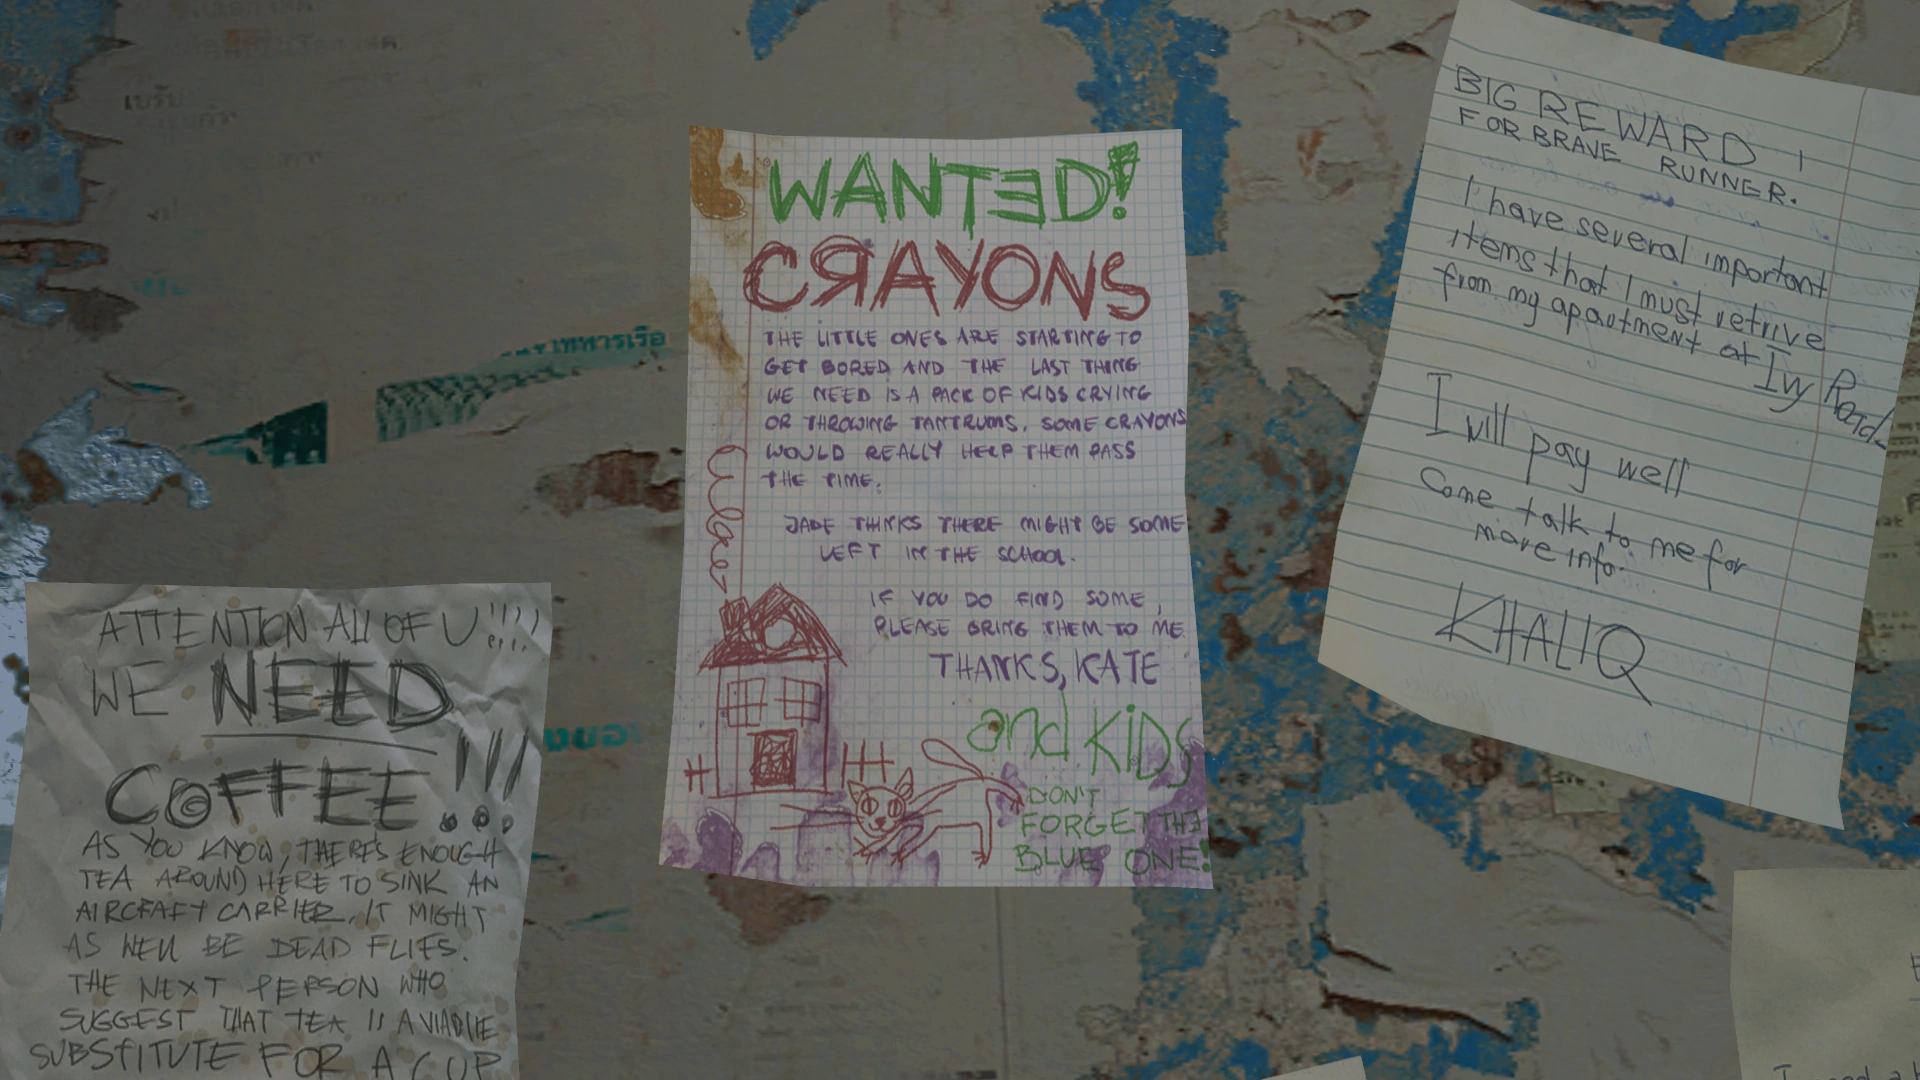 WANTED!
CRAYONS
THE LITTLE ONES ARE STARTING TO
GET BORED AND THE LAST THING
WE NEED IS A PACK OF KIDS CRYING
OR THROWING TANTRUMS. SOME CRAYONS
WOULD REALLY HELP THEM PASS
THE TIME.
JADE THINKS THERE MIGHT BE SOME
LEFT IN THE SCHOOL.
IF YOU DO FIND SOME,
PLEASE BRING THEM TO ME.
THANKS, KATE
and KiDS
DON'T
FORGET THE
BLUE ONE!
BIG REWARD!
FOR BRAVE RUNNER.
I have several important
items that I must retrive
from my apartment at Ivy Road
I will pay well
Come talk to me for
more info.
KHALIQ
ATTENTION All OF U!!!!
WE NEED
COFFEE!!!
AS YOU KNOW, THERE'S ENOUGH
TEA AROUND HERE TO SINK AN
AIRCRAFT CARRIER. IT MIGHT
AS WELL BE DEAD FLIES.
THE NEXT PERSON WHO
SUGGEST THAT TEA IS A VIABLE
SUBSTITUTE FOR A CUP